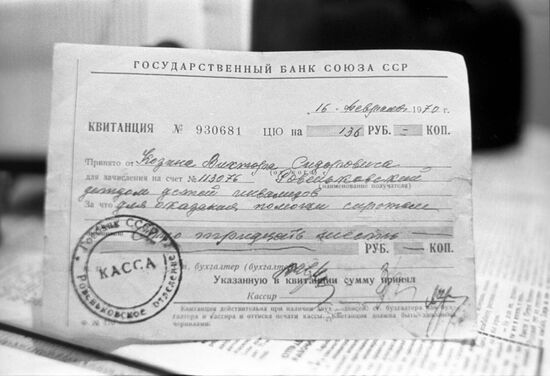 ГОСУДАРСТВЕННЫЙ БАНК СОЮЗА ССР
16 февраля 1970 г.
КВИТАНЦИЯ № 930681 ЦЮ на 136 РУБ. — КОП.
Принято от Козина Виктора Сидоровича
(от кого)
для зачисления на счет № 113076 Ровеньковский
детдом детей инвалидов (наименование получателя)
За что для оказания помощи сиротам
Сто тридцать шесть —
РУБ. — КОП.
бухгалтер (бухгалтер)
Указанную в квитанции сумму принял
Кассир
Квитанция действительна при наличии двух подписей: ст. бухгалтера или бух-
галтера и кассира и оттиска печати кассы. Квитанция должна быть заполнена
чернилами.
Госбанк СССР
КАССА
Ровеньковское отделение